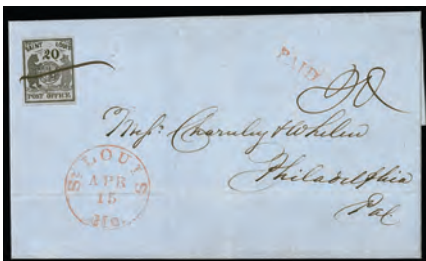 SAINT LOUIS
20
POST OFFICE
PAID
20
Messrs Charnley & Whelen
Philadelphia
Pa
ST LOUIS
APR
15
Mo.